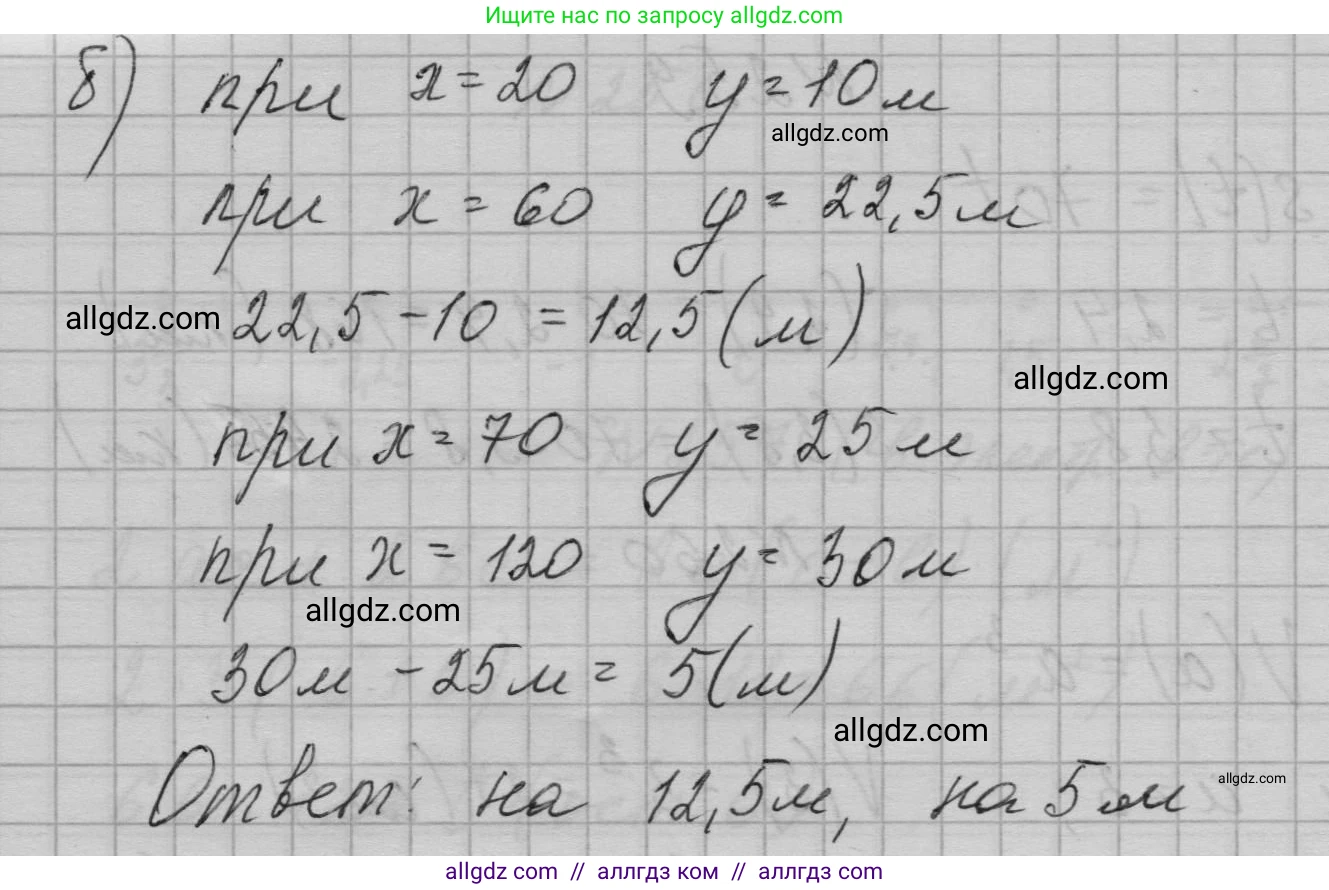 Ищите нас по запросу allgdz.com
б) при x = 20 y = 10 м
allgdz.com
при x = 60 y = 22,5 м
allgdz.com 22,5 - 10 = 12,5 (м)
allgdz.com
при x = 70 y = 25 м
при x = 120 y = 30 м
allgdz.com
30м - 25м = 5 (м)
allgdz.com
allgdz.com
Ответ: на 12,5 м, на 5 м
allgdz com // аллгдз ком // аллгдз com